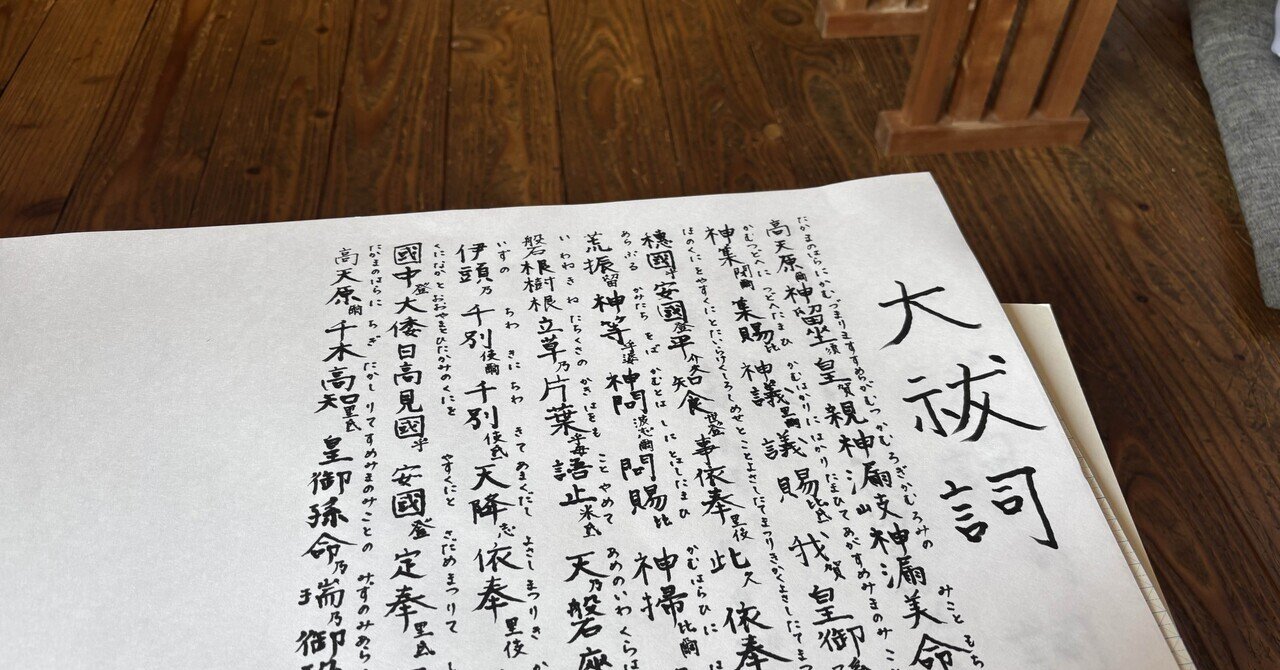 大祓詞
たかまのはらにかむづまりますすめらがむつかむろぎかむろみの みこともち
高天原爾神留坐須皇賀親神漏岐神漏美命
かむつどへにつどへたまひ かむはかりにはかりたまひてあがすめみまのみこ
神集閉爾集賜比神議里爾議賜比氐我賀皇御孫
ほのくにをやすくにとたいらけくしろしめせとことよさしたてまつりきかくよさしたてまつ
穗國乎安國登平介久知食世登事依奉里伎此久依奉
あらぶる かみたち をば かむとはしにとはしたまひ かむはらひに
荒振留神等乎婆神問波志爾問賜比神掃比爾
いわねきねたちくさの かきはをも ことやめて あめのいわくらは
磐根樹根立草乃片葉乎母語止米氐天乃磐座
いずの ちわ きにちわ きてあまくだし よさしまつりき か
伊頭乃千別伎爾千別伎氐天降志依奉里伎
くになかとおおやまとひだかみのくにを やすくにと さだめまつりて し
國中登大倭日高見國乎安國登定奉里氐
たかまのはらに ちぎ たかしりてすめみまのみことの みずのみあら
高天原爾千木高知里氐皇御孫命乃瑞乃御